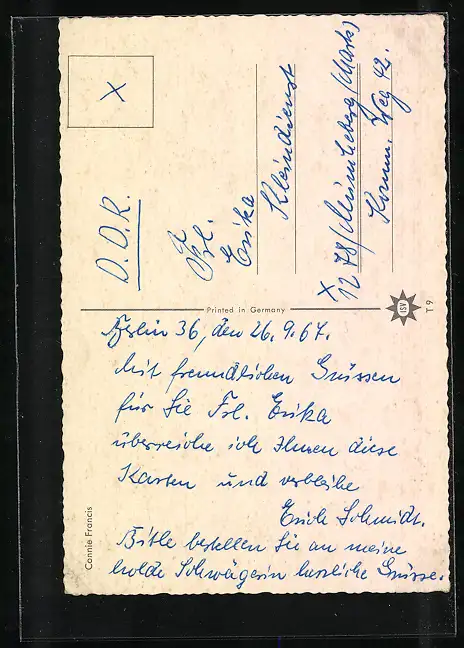 Berlin 36, den 26.9.67.
Mit freundlichen Grüssen
für Sie Frl. Erika
überreiche ich Ihnen diese
Karten und verbleibe
Erich Schmidt.
Bitte bestellen Sie an meine
holde Schwägerin herzliche Grüsse.
Connie Francis
Printed in Germany
ISV
T 9
X
D.D.R.
Frl.
Erika
Kleindienst
X
1278/Müncheberg/(Mark)
Komm. Weg 42.